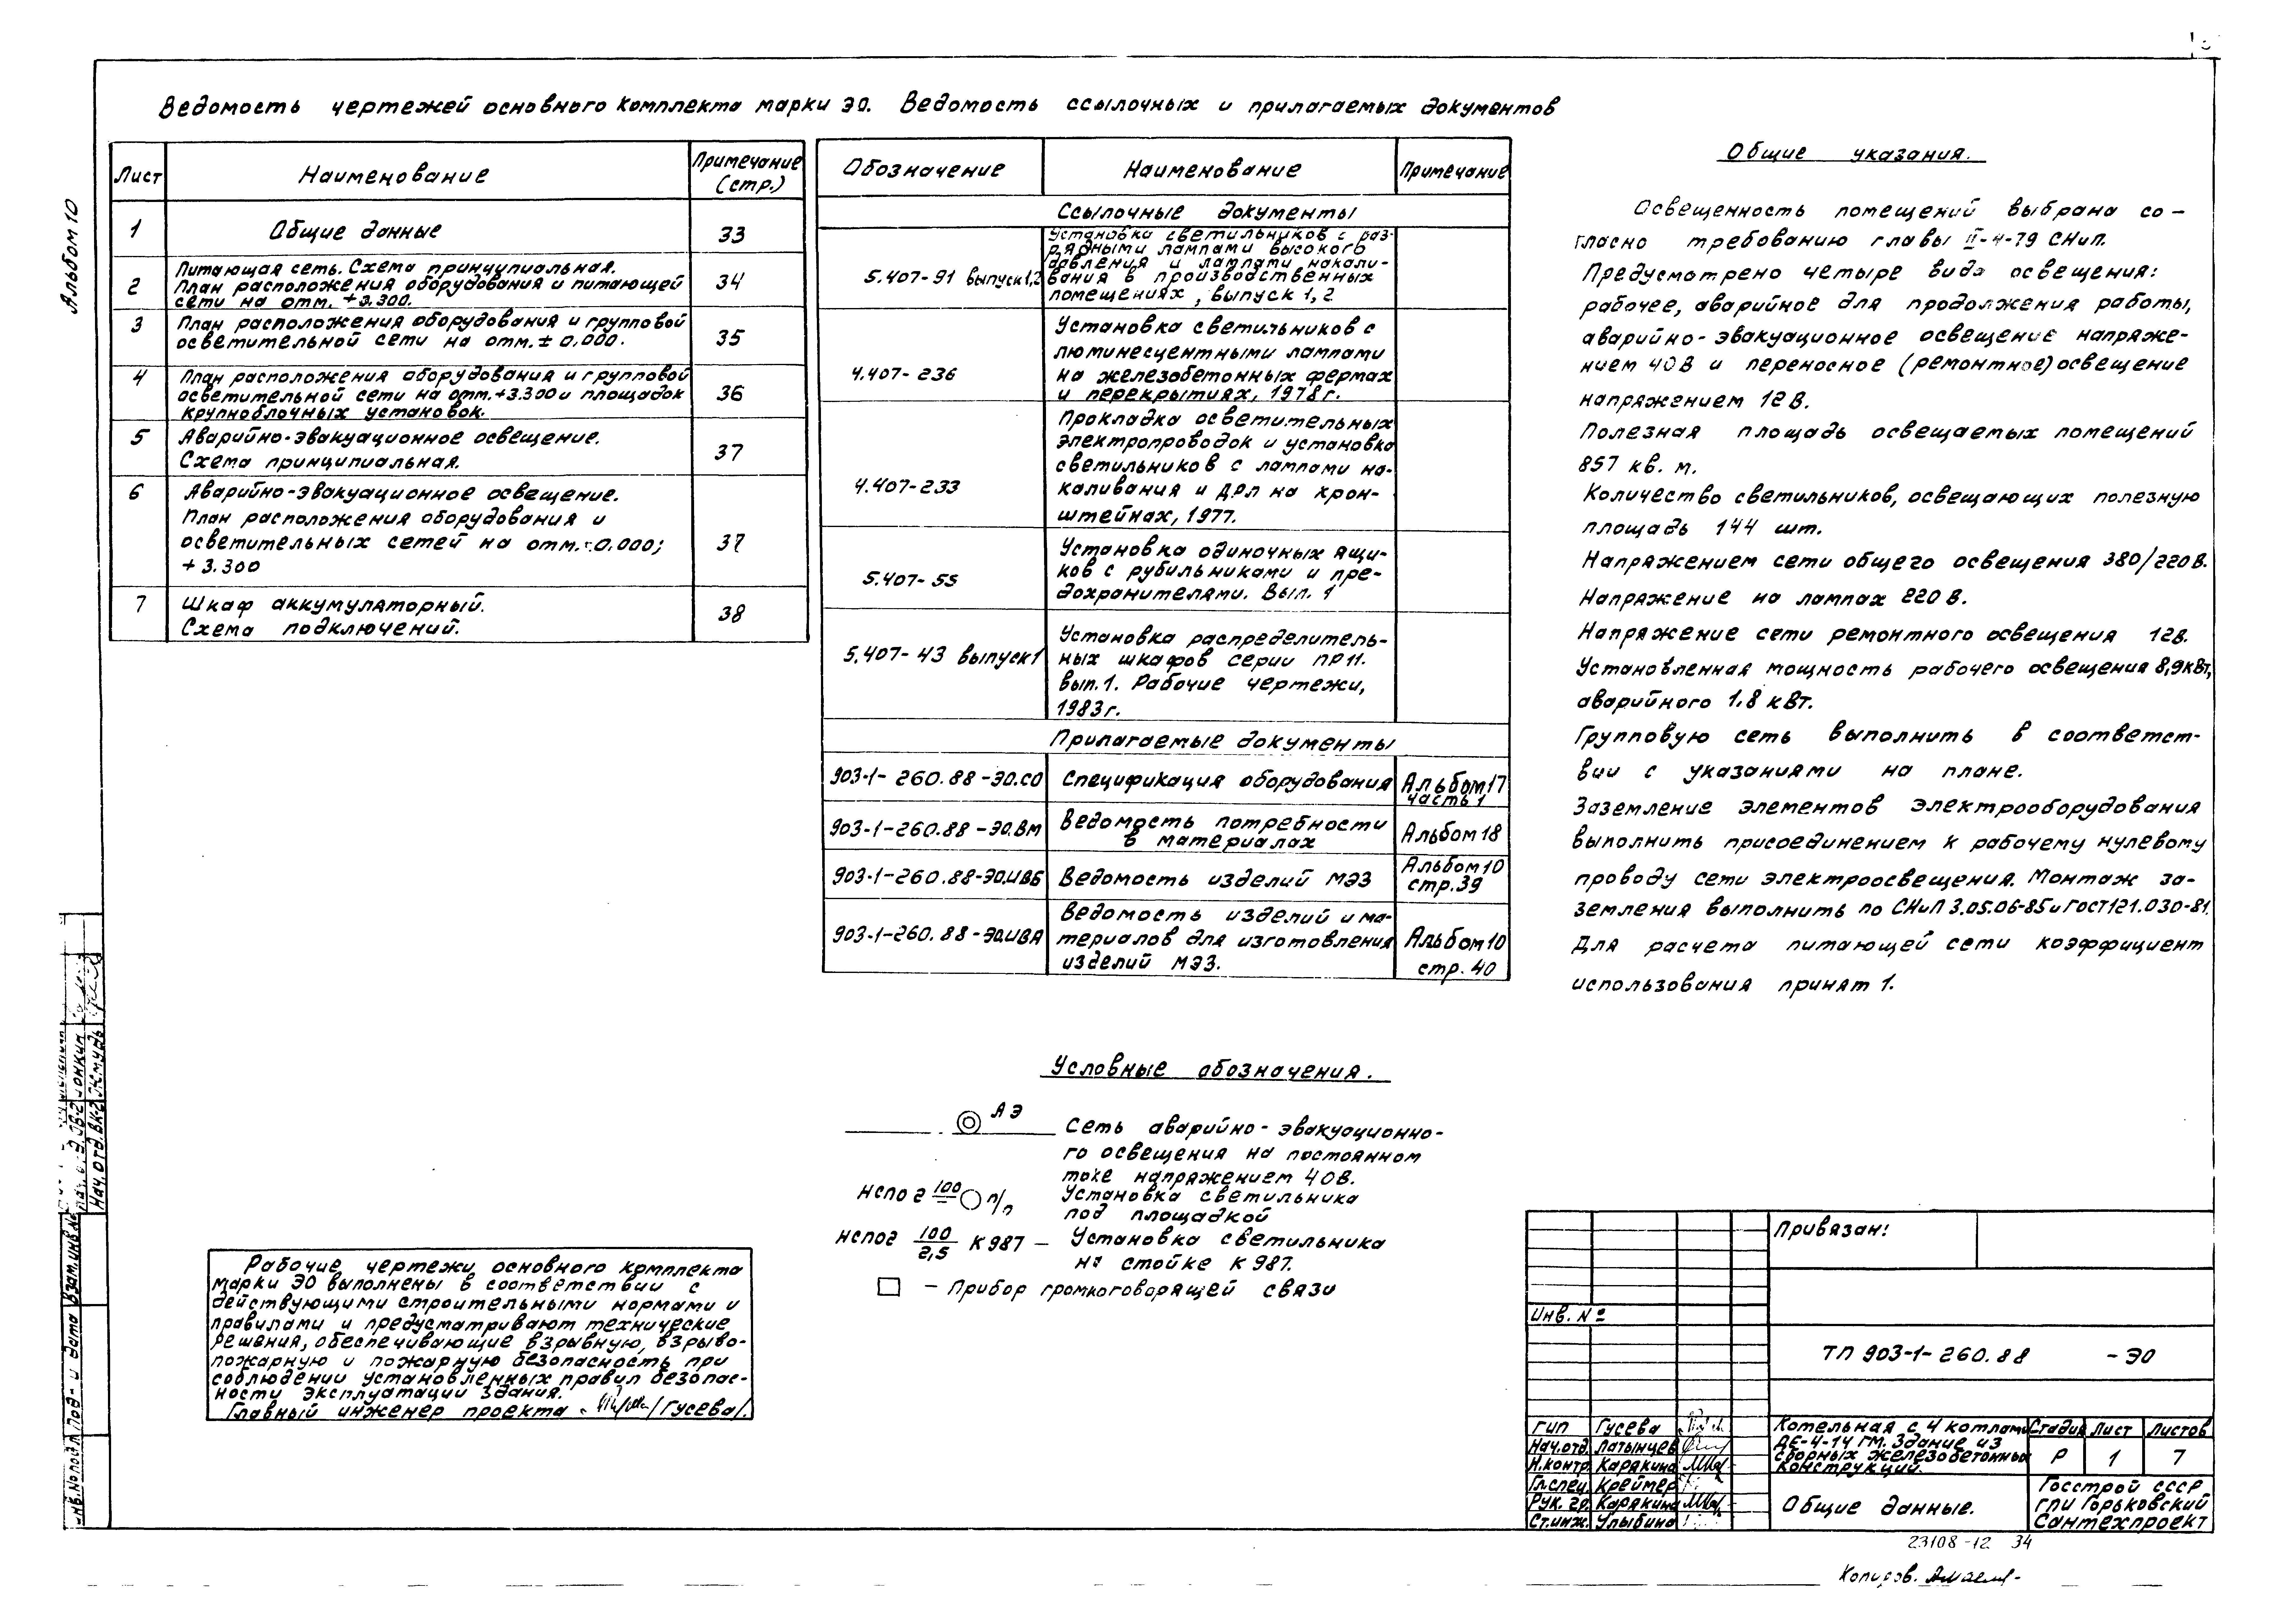 Альбом 10
Ведомость чертежей основного комплекта марки ЭО. Ведомость ссылочных и прилагаемых документов
Лист Наименование Примечание (стр.)
1 Общие данные 33
2 Питающая сеть. Схема принципиальная.
План расположения оборудования и питающей
сети на отм. +3.300. 34
3 План расположения оборудования и групповой
осветительной сети на отм. ± 0,000. 35
4 План расположения оборудования и групповой
осветительной сети на отм. +3.300 и площадок
крупноблочных установок. 36
5 Аварийно-эвакуационное освещение.
Схема принципиальная. 37
6 Аварийно-эвакуационное освещение.
План расположения оборудования и
осветительных сетей на отм. 0.000;
+ 3.300 37
7 Шкаф аккумуляторный.
Схема подключений. 38
Обозначение Наименование Примечание
Ссылочные документы
5.407-91 выпуск 1,2 Установка светильников с раз-
рядными лампами высокого
давления и лампами накали-
вания в производственных
помещениях, выпуск 1, 2
4.407-236 Установка светильников с
люминесцентными лампами
на железобетонных фермах
и перекрытиях, 1978г.
4.407-233 Прокладка осветительных
электропроводок и установка
светильников с лампами на-
каливания и ДРЛ на крон-
штейнах, 1977.
5.407-55 Установка одиночных ящи-
ков с рубильниками и пре-
дохранителями. Вып. 1
5.407-43 выпуск 1 Установка распределитель-
ных шкафов серии ПР11.
вып. 1. Рабочие чертежи,
1983г.
Прилагаемые документы
903-1-260.88-ЭО.СО Спецификация оборудования Альбом 17
часть 1
903-1-260.88-ЭО.ВМ Ведомость потребности
в материалах Альбом 18
903-1-260.88-ЭО.ИВБ Ведомость изделий МЭЗ Альбом 10
стр. 39
903-1-260.88-ЭО.ИВА Ведомость изделий и ма-
териалов для изготовления
изделий МЭЗ. Альбом 10
стр. 40
Общие указания.
Освещенность помещений выбрана со-
гласно требованию главы II-4-79 СНиП.
Предусмотрено четыре вида освещения:
рабочее, аварийное для продолжения работы,
аварийно-эвакуационное освещение напряже-
нием 40В и переносное (ремонтное) освещение
напряжением 12В.
Полезная площадь освещаемых помещений
857 кв. м.
Количество светильников, освещающих полезную
площадь 144 шт.
Напряжением сети общего освещения 380/220В.
Напряжение на лампах 220В.
Напряжение сети ремонтного освещения 12В.
Установленная мощность рабочего освещения 8,9кВт,
аварийного 1.8 кВт.
Групповую сеть выполнить в соответст-
вии с указаниями на плане.
Заземление элементов электрооборудования
выполнить присоединением к рабочему нулевому
проводу сети электроосвещения. Монтаж за-
земления выполнить по СНиП 3.05.06-85 и ГОСТ 121.030-81.
Для расчета питающей сети коэффициент
использования принят 1.
Условные обозначения.
АЭ Сеть аварийно-эвакуационно-
го освещения на постоянном
токе напряжением 40В.
НСП02 100 п/п Установка светильника
под площадкой
НСП02 100/2,5 К987 — Установка светильника
на стойке К987.
— Прибор громкоговорящей связи
Рабочие чертежи основного комплекта
марки ЭО выполнены в соответствии с
действующими строительными нормами и
правилами и предусматривают технические
решения, обеспечивающие взрывную, взрыво-
пожарную и пожарную безопасность при
соблюдении установленных правил безопас-
ности эксплуатации здания.
Главный инженер проекта /Гусева/.
Нач. отд. ВК-2 Жмудь
Взам. инв. №
Под- и дата
Инв. № подл.
Привязан:
Инв. №
ТП 903-1-260.88 -ЭО
ГИП Гусева
Нач. отд. Латынцев
Н. контр. Карякина
Гл. спец. Крейтер
Рук. гр. Карякина
Ст. инж. Улыбина
Котельная с 4 котлами
ДЕ-4-14 ГМ. Здание из
сборных железобетонных
конструкций.
Стадия Лист Листов
Р 1 7
Общие данные.
Госстрой СССР
ГПИ Горьковский
Сантехпроект
23108-12 34
Копиров.